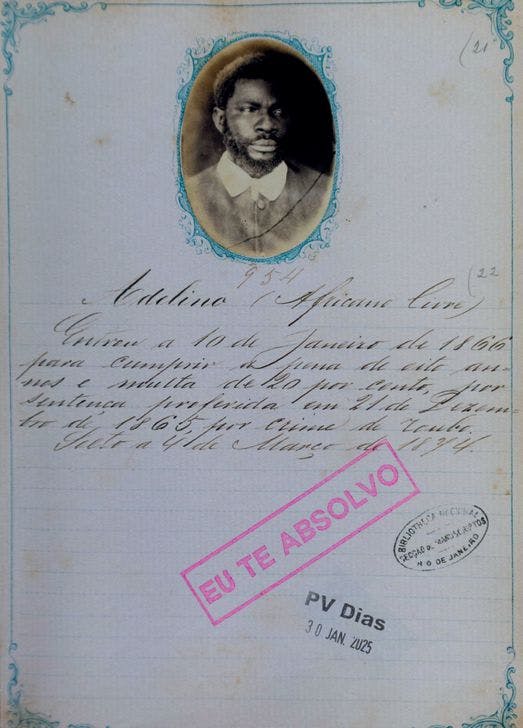 (21
954
(22
Adelino (Africano livre)
Entrou a 10 de Janeiro de 1866
para cumprir a pena de oito an-
nos e multa de 20 por cento, por
sentença proferida em 21 de Dezem-
bro de 1865, por crime de roubo.
Solto a 4 de Março de 1874.
EU TE ABSOLVO
BIBLIOTHECA NACIONAL
SECÇÃO DE MANUSCRIPTOS
RIO DE JANEIRO
PV Dias
30 JAN. 2025